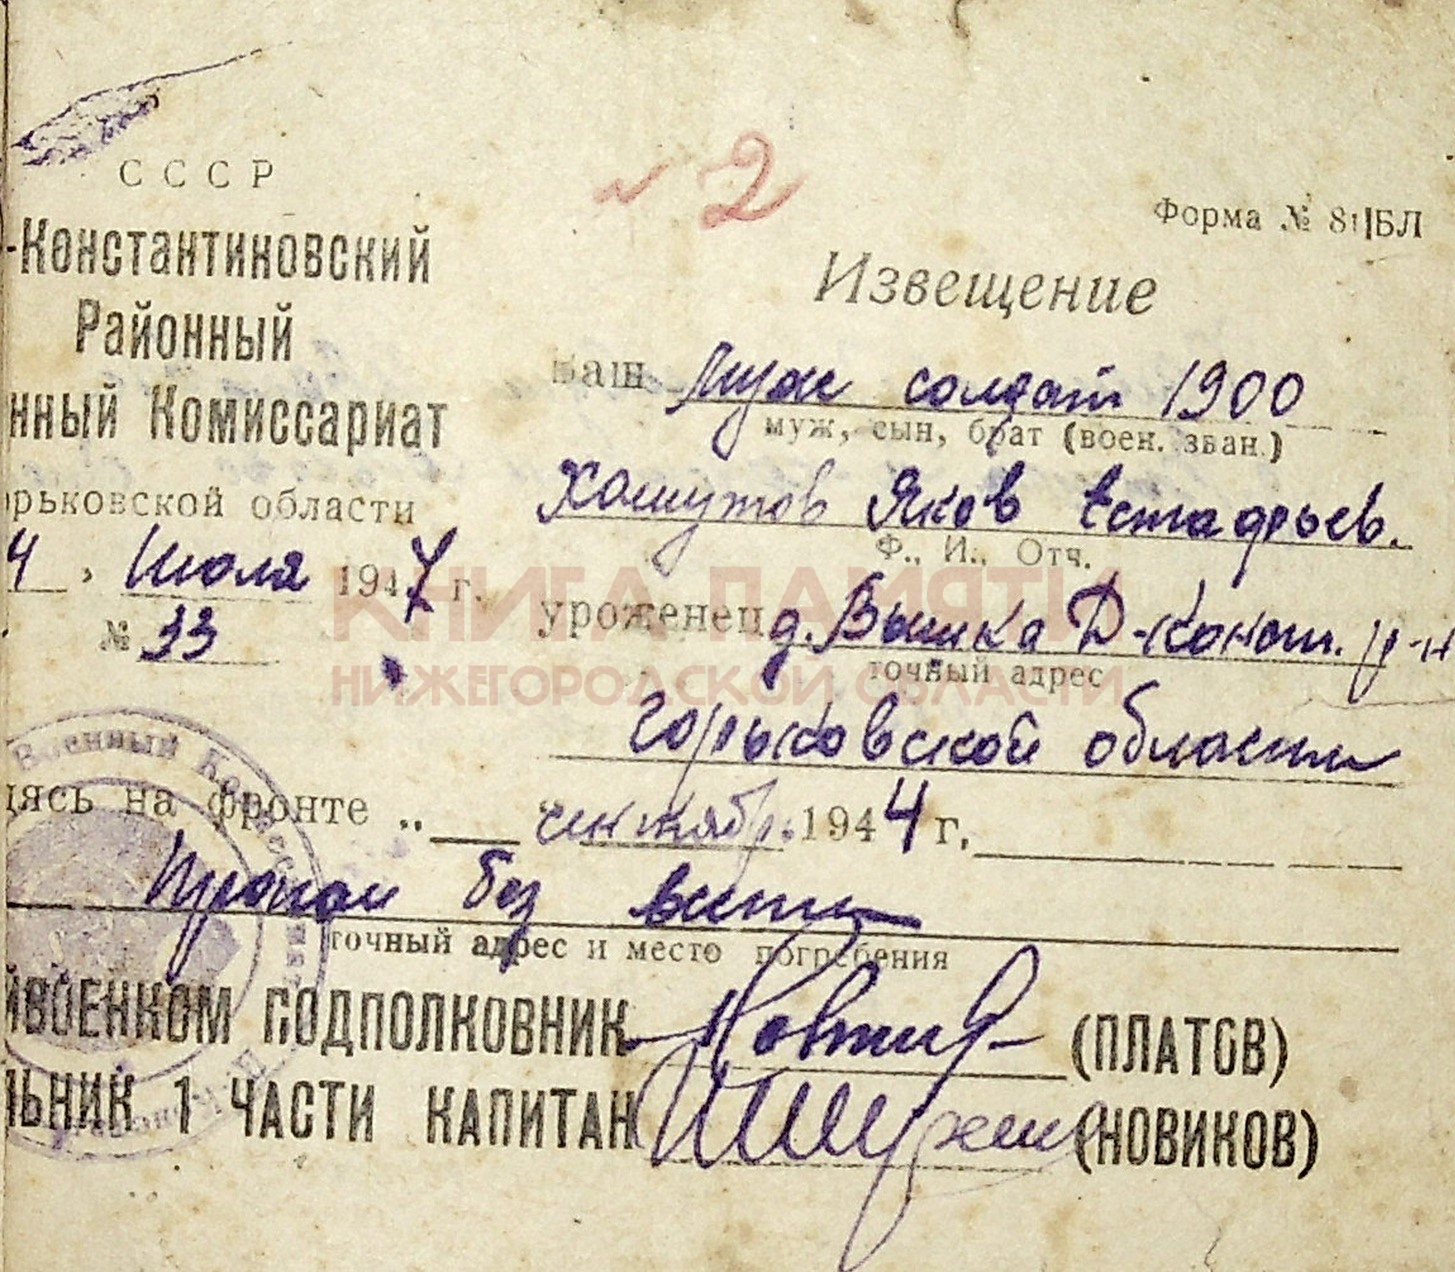 СССР
-Константиновский
Районный
нный Комиссариат
орьковской области
4 " Июля 1947 г.
№ 33
№ 2
Форма № 81БЛ
Извещение
Ваш муж солдат 1900
муж, сын, брат (воен. зван.)
Хомутов Яков Естафьев.
Ф., И., Отч.
уроженец д. Вышка Д-Конст. р-н
точный адрес
Горьковской области
дясь на фронте „ сентябр. 1944 г.
Пропал без вести
точный адрес и место погребения
йвоенком подполковник (ПЛАТОВ)
льник 1 части капитан (НОВИКОВ)
Военный Комисс
КНИГА ПАМЯТИ
НИЖЕГОРОДСКОЙ ОБЛАСТИ